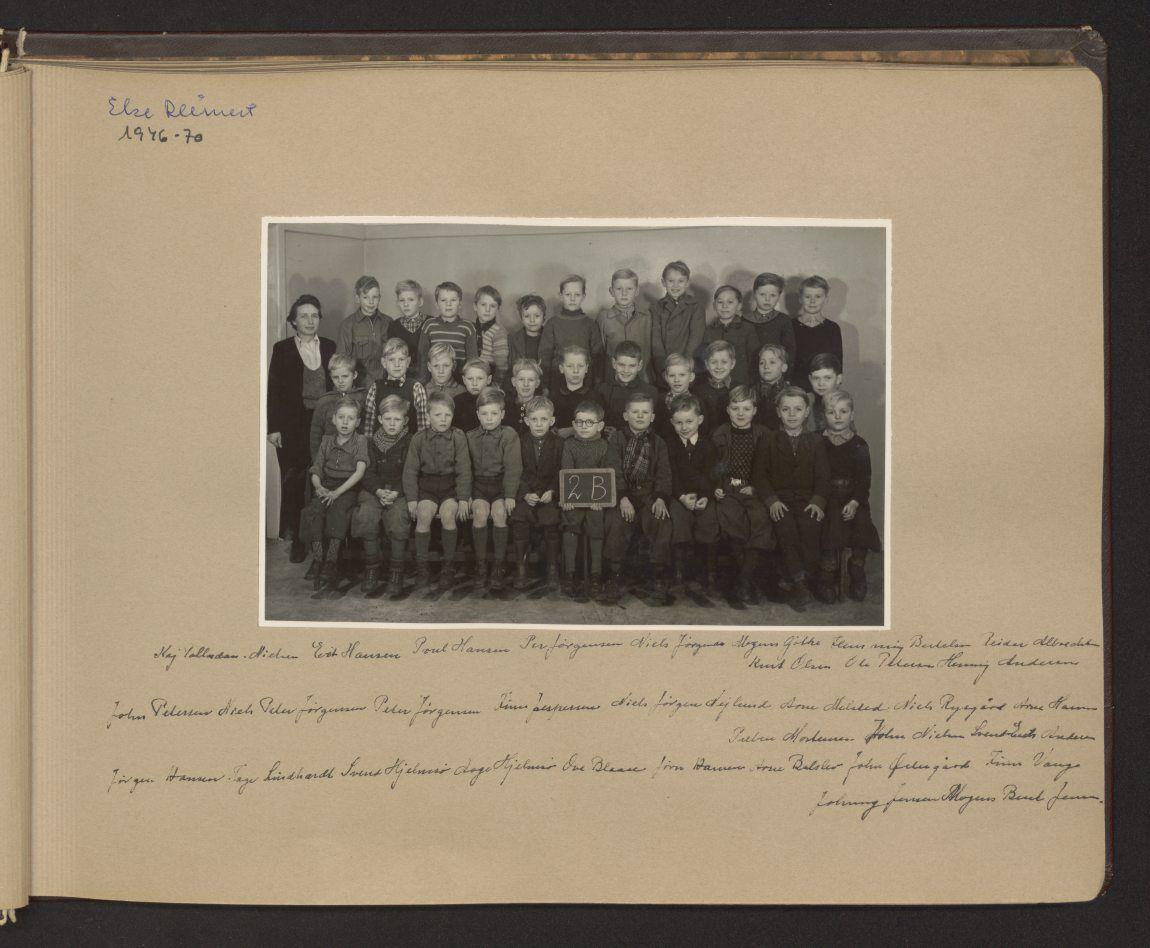 Else Reimert
1946-70
2 B
Kaj Nielsen Erik Hansen Poul Hansen Per Jørgensen Niels Jørgensen Mogens Gøtke Flemming Bertelsen Reidar Albrechtsen
Kurt Olsen Ole Petersen Henning Andersen
John Petersen Niels Peter Jörgensen Peter Jörgensen Finn Jespersen Niels Jörgen Nejlund Arne Melsted Niels Rysgård Arne Hansen
Preben Mortensen John Nielsen Svend Erik Andersen
Jørgen Hansen Tage Lindhardt Svend Hjelmsø Aage Hjelmsø Ove Blaase Jörn Hansen Arne Balslev John Østergård Finn Vange
Johnny Jensen Mogens Bent Jensen.